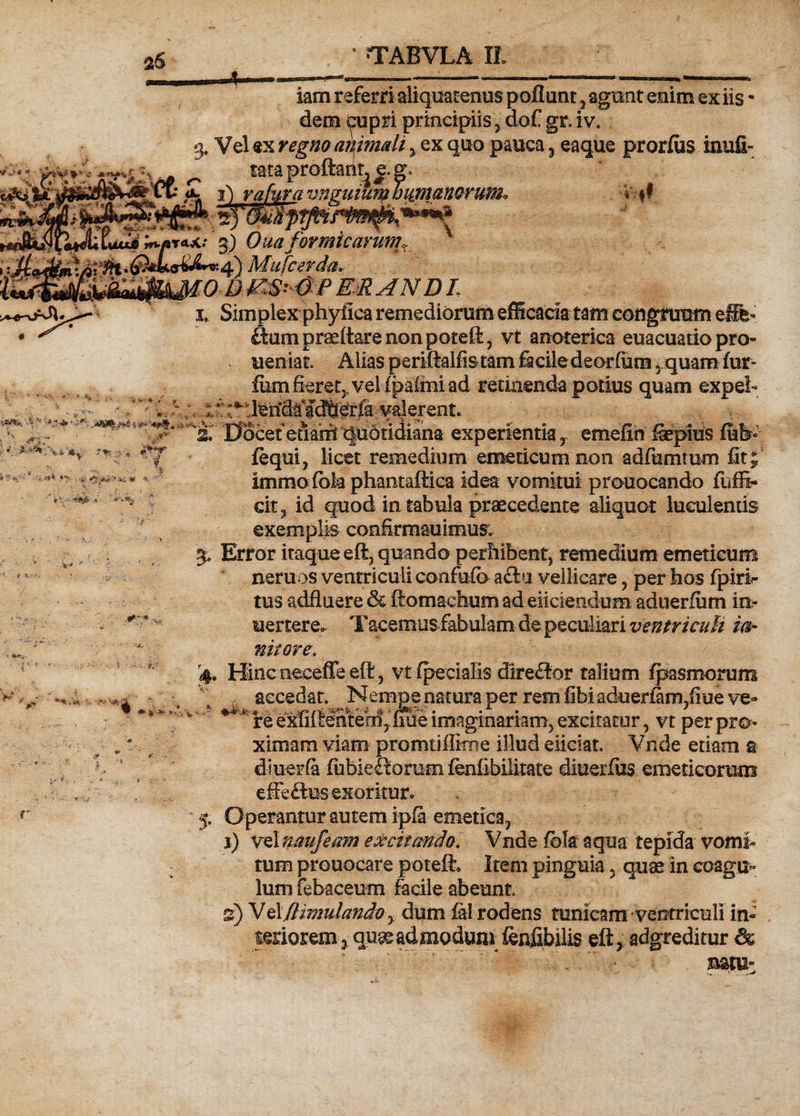 26 TABVLA II.
iam referri aliquatenus poſſunt, agunt enim ex iis-
dem cupri principiis, doſ. gr. iv.
3. Vel ex regno animali, ex quo pauca, eaque prorſus inuſi-
tata proſtant, e. g.
1) raſura vnguium humanorum.
2)
3) Oua formicarum.
4) Muſcerda.
MODVS OPERANDI.
1. Simplex phyſica remediorum efficacia tam congruum effe-
ctum præſtare non poteſt, vt anoterica euacuatio pro-
ueniat. Alias periſtalſis tam facile deorſum, quam ſur-
ſum fieret, vel ſpaſmi ad retinenda potius quam expel-
lenda aduerſa valerent.
2. Docet etiam quotidiana experientia, emeſin ſæpius ſub-
ſequi, licet remedium emeticum non adſumtum ſit;
immo ſola phantaſtica idea vomitui prouocando ſuffi-
cit, id quod in tabula præcedente aliquot luculentis
exemplis confirmauimus.
3. Error itaque eſt, quando perhibent, remedium emeticum
neruos ventriculi confuſo actu vellicare, per hos ſpiri-
tus adfluere & ſtomachum ad eiiciendum aduerſum in-
uertere. Tacemus fabulam de peculiari ventriculi ia-
nitore.
4. Hinc neceſſe eſt, vt ſpecialis director talium ſpasmorum
accedat. Nempe natura per rem ſibi aduerſam, ſiue ve-
re exſiſtentem, ſiue imaginariam, excitatur, vt per pro-
ximam viam promtiſſime illud eiiciat. Vnde etiam a
diuerſa ſubiectorum ſenſibilitate diuerſus emeticorum
effectus exoritur.
5. Operantur autem ipſa emetica,
1) vel nauſeam excitando. Vnde ſola aqua tepida vomi-
tum prouocare poteſt. Item pinguia, quæ in coagu-
lum ſebaceum facile abeunt.
2) Vel ſtimulando, dum ſal rodens tunicam ventriculi in-
teriorem, quæ admodum ſenſibilis eſt, adgreditur &
natu-